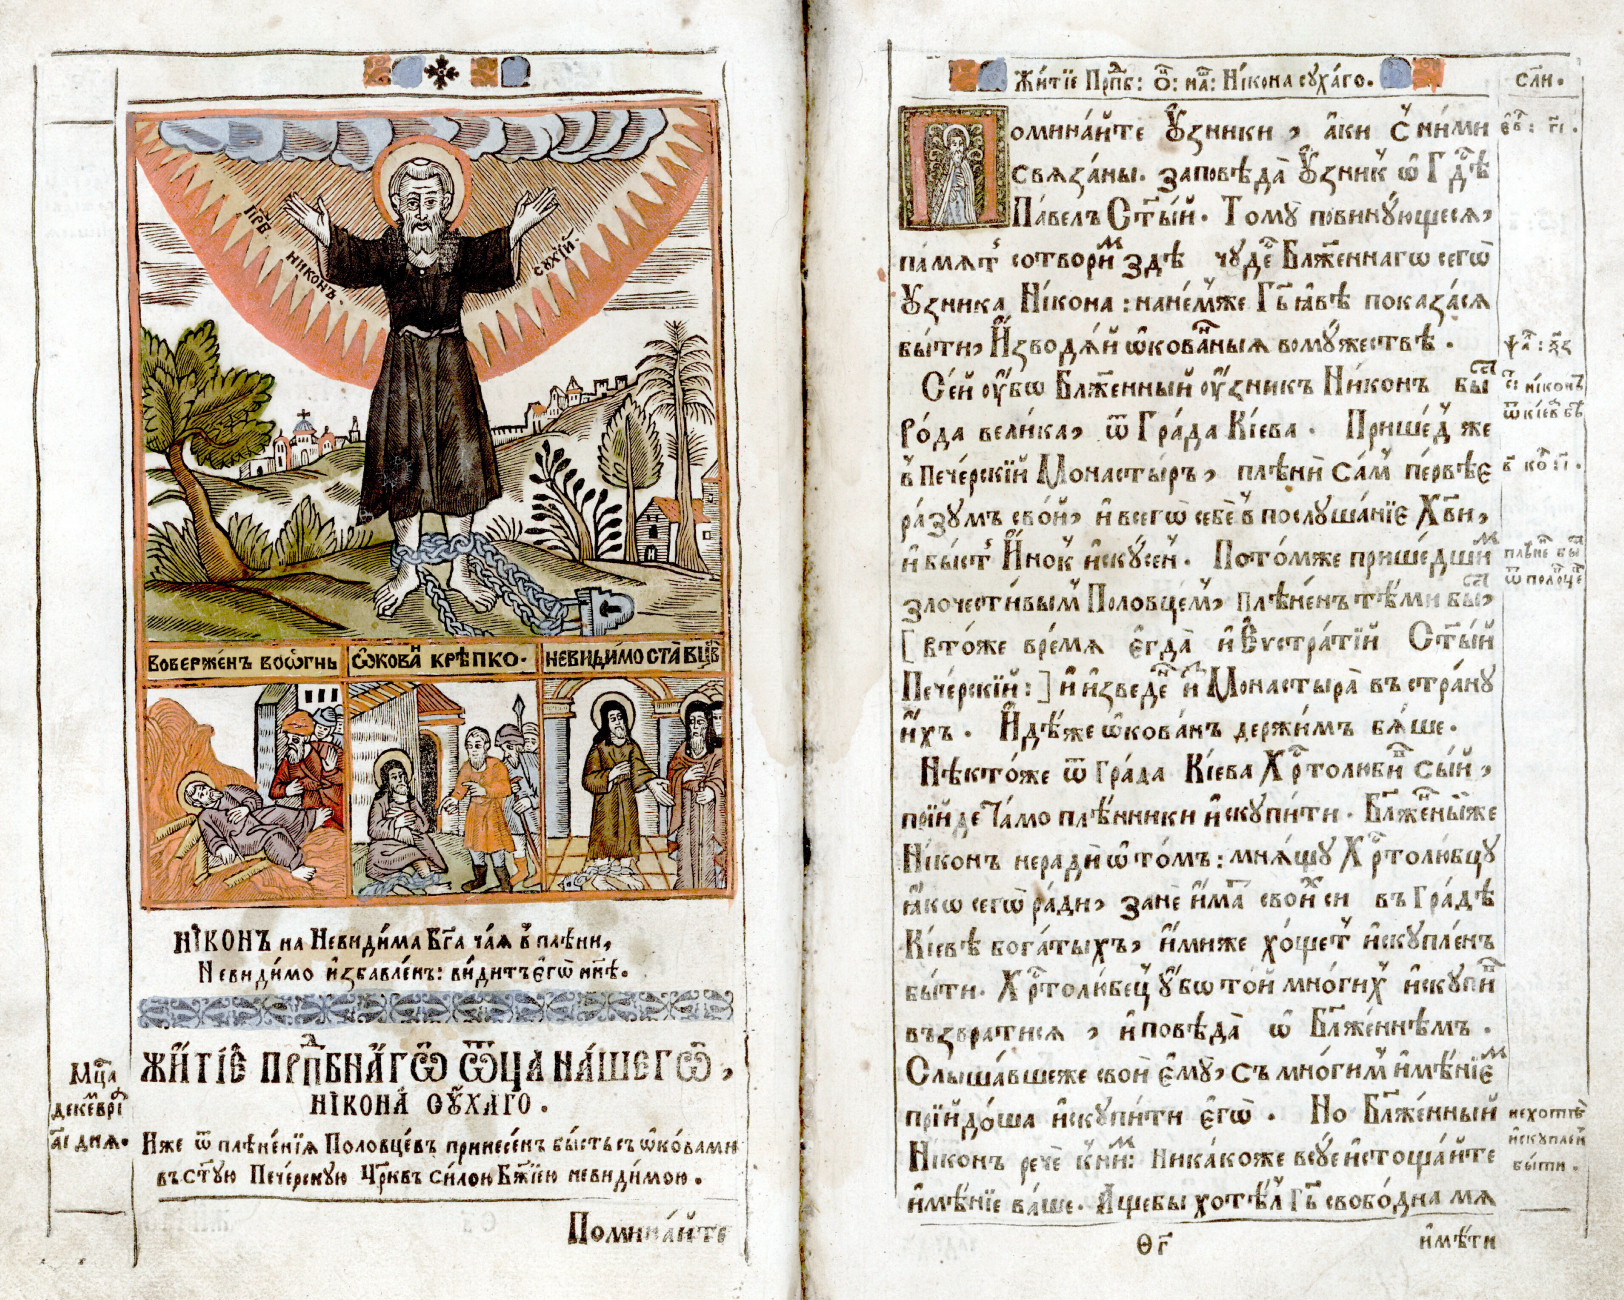 ПРПБ НИКОНЪ СꙋХІЙ
ВОВЕРЖЕНЪ ВО ѺГНЬ
ѠКОВАН КРѢПКО.
НЕВИДИМО СТА В ЦРВ
НІКОНЪ на Невиди́ма Бг҃а ча́ѧ в̾ плѣ́ни,
Невиди́мо и҆зба́вленъ: ви́дитъ є҆гѡ̀ нн҃ѣ.
ЖИ́ТІЕ ПРПⷣБНАГѠ Ѿ҆ЦА НА́ШЕГѠ,
НІ́КОНА СꙋХА́ГО.
Мцⷭ҇а
декеврⷨі
а҃і днѧ.
Иже ѿ плѣне́нїѧ Половце́въ принесе́нъ бы́сть съ ѡ҆ко́вами
въ ст҃ꙋю Пече́рскꙋю Цр҃ковь си́лою Бж҃їею неви́димою.
Помина́йте
Жи́тїе Прпⷣб: Ѻ҃: на́: Ні́кона сꙋха́го.
сл҃и.
Помина́йте Ꙋ҆́зники, а҆́ки с̾ ни́ми
свѧ́заны. заповѣ́да Ꙋ҆́зник ѡ҆ Гдⷭ҇ѣ
Па́велъ Ст҃ы́й. Томꙋ̀ повинꙋ́ющесѧ,
па́мѧт сотвори́м здѣ̀ чꙋде́ Бл҃же́ннагѡ сегѡ̀
Ꙋ҆́зника Ні́кона: на не́мже Гь҃ ꙗ҆́вѣ показа́сѧ
бы́ти, И҆зводѧ́й ѡ҆кова́нныѧ во мꙋ́жествѣ.
Се́й ᲂу҆́бѡ Бл҃же́нный ᲂу҆́зникъ Ни́конъ бы́сⷭ
Ро́да вели́ка, ѿ Гра́да Кі́ева. Прише́д же
в̾ Пече́рскїй Монасты́ръ, плѣнѝ са́м пе́рвѣе
ра́зꙋмъ сво́й, и҆ всегѡ̀ себѐ в̾ послꙋша́нїе Хв҃и,
и҆ бы́ст И҆́нок и҆скꙋ́сен. Пото́мже прише́дшим
злочести́вым Половцем, плѣне́нъ тѣ́ми бы́сⷭ,
[ в то́же вре́мѧ є҆гда̀ и҆ Єѵстра́тїй Ст҃ы́й
Пече́рскїй: ] и҆ и҆зведе́н и҆з Монастырѧ̀ въ странꙋ̀
и҆́хъ. И҆дѣ́же ѡ҆ко́ванъ держи́мъ бѧ́ше.
Нѣ́ктоже ѿ гра́да Кі́ева Хрⷭ҇толюби́в сы́й,
прїи́де та́мо плѣ́нники и҆скꙋпи́ти. Бл҃же́ный же
Ні́конъ неради̂ ѡ҆ то́мъ: мнѧ́щꙋ Хрⷭ҇толю́бцꙋ
ꙗ҆́кѡ сегѡ̀ ра́ди, зане̂ и҆́мат свои́х си въ Гра́дѣ
Кі́евѣ бога́тыхъ, и҆́миже хо́щет и҆скꙋ́пленъ
бы́ти. Хрⷭ҇толю́бец ᲂу҆́бѡ то́й мно́гих и҆скꙋпи́в
възврати́сѧ, и҆ повѣ́да ѡ҆ Бл҃же́ннѣмъ.
Слы́шавшеже свои̂ є҆мꙋ̀, съ мно́гим и҆мѣ́нїем
прїидо́ша и҆скꙋпи́ти є҆гѡ̀. Но Бл҃же́нный
Ні́конъ речѐ к̾ ни́м: Ника́коже всꙋ́е и҆стоща́йте
и҆мѣ́нїе ва́ше. А҆́щебы хотѣ́л Гь҃ свобо́дна мѧ
Ѳ҃г
и҆мѣ́ти
є҆в: г҃і.
ні́конъ
ѿ кі́ева бѣ̀
в҃ ко: г҃і.
плѣне́ бы́сⷭ
ѿ поло́вце
не хотѣ̀
и҆скꙋ́плен
бы́ти.